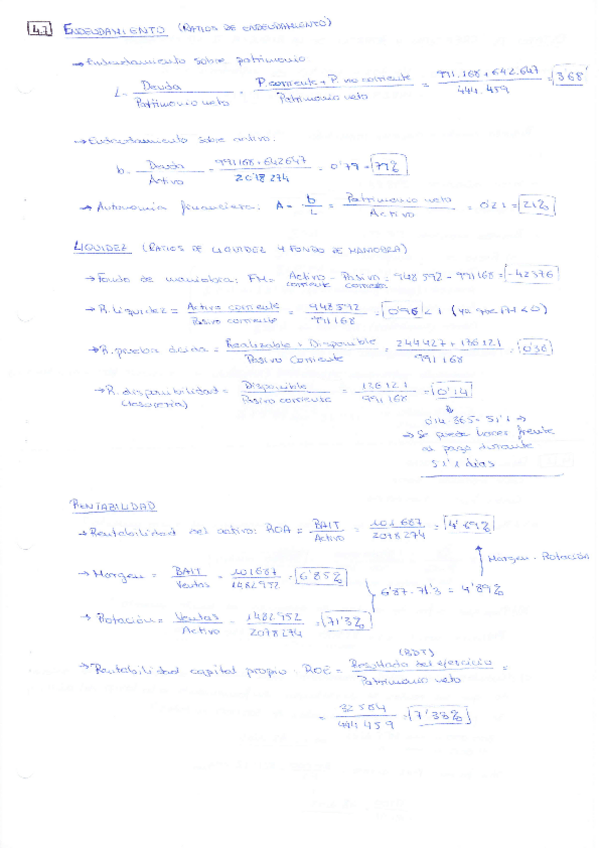 4.7 ENDEUDAMIENTO (RATIOS DE ENDEUDAMIENTO)
→ Endeudamiento sobre patrimonio
L = Deuda / Patrimonio neto = P. corriente + P. no corriente / Patrimonio neto = 991.168 + 642.647 / 444.459 = 3'68
→ Endeudamiento sobre activo.
b = Deuda / Activo = 991168 + 642647 / 2078274 = 0'79 = 79%
→ Autonomía financiera: A = b / L = Patrimonio neto / Activo = 0'21 = 21%
LIQUIDEZ (RATIOS DE LIQUIDEZ Y FONDO DE MANIOBRA)
→ Fondo de maniobra: FM = Activo corriente - Pasivo corriente = 948 592 - 991168 = -42376
→ R. liquidez = Activo corriente / Pasivo corriente = 948592 / 991168 = 0'96 < 1 (ya que FM < 0)
→ R. prueba ácida = Realizable + Disponible / Pasivo Corriente = 244427 + 136121 / 991168 = 0'38
→ R. disponibilidad (tesorería) = Disponible / Pasivo corriente = 136121 / 991168 = 0'14
0'14 · 365 = 51'1 →
→ Se puede hacer frente
al pago durante
51'1 días
RENTABILIDAD
→ Rentabilidad del activo: ROA = BAIT / Activo = 101687 / 2078274 = 4'89%
Margen · Rotación
→ Margen = BAIT / Ventas = 101687 / 1482952 = 6'85%
6'87 · 71'3 = 4'89%
→ Rotación = Ventas / Activo = 1482952 / 2078274 = 71'3%
→ Rentabilidad capital propio: ROE = Resultado del ejercicio (BDT) / Patrimonio neto =
= 32564 / 444459 = 7'33%